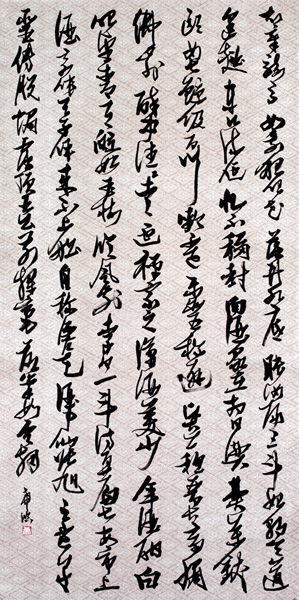 知章骑马似乘船眼花落井水底眠汝阳三斗始朝天道
逢麴车口流涎恨不移封向酒泉左相日兴费万钱
饮如长鲸吸百川衔杯乐圣称避贤苏晋长斋绣
佛前醉中往往爱逃禅宗之潇洒美少年举觞白
眼望青天皎如玉树临风前李白一斗诗百篇长安市上
酒家眠天子呼来不上船自称臣是酒中仙张旭三杯草
圣传脱帽露顶王公前挥毫落纸如云烟